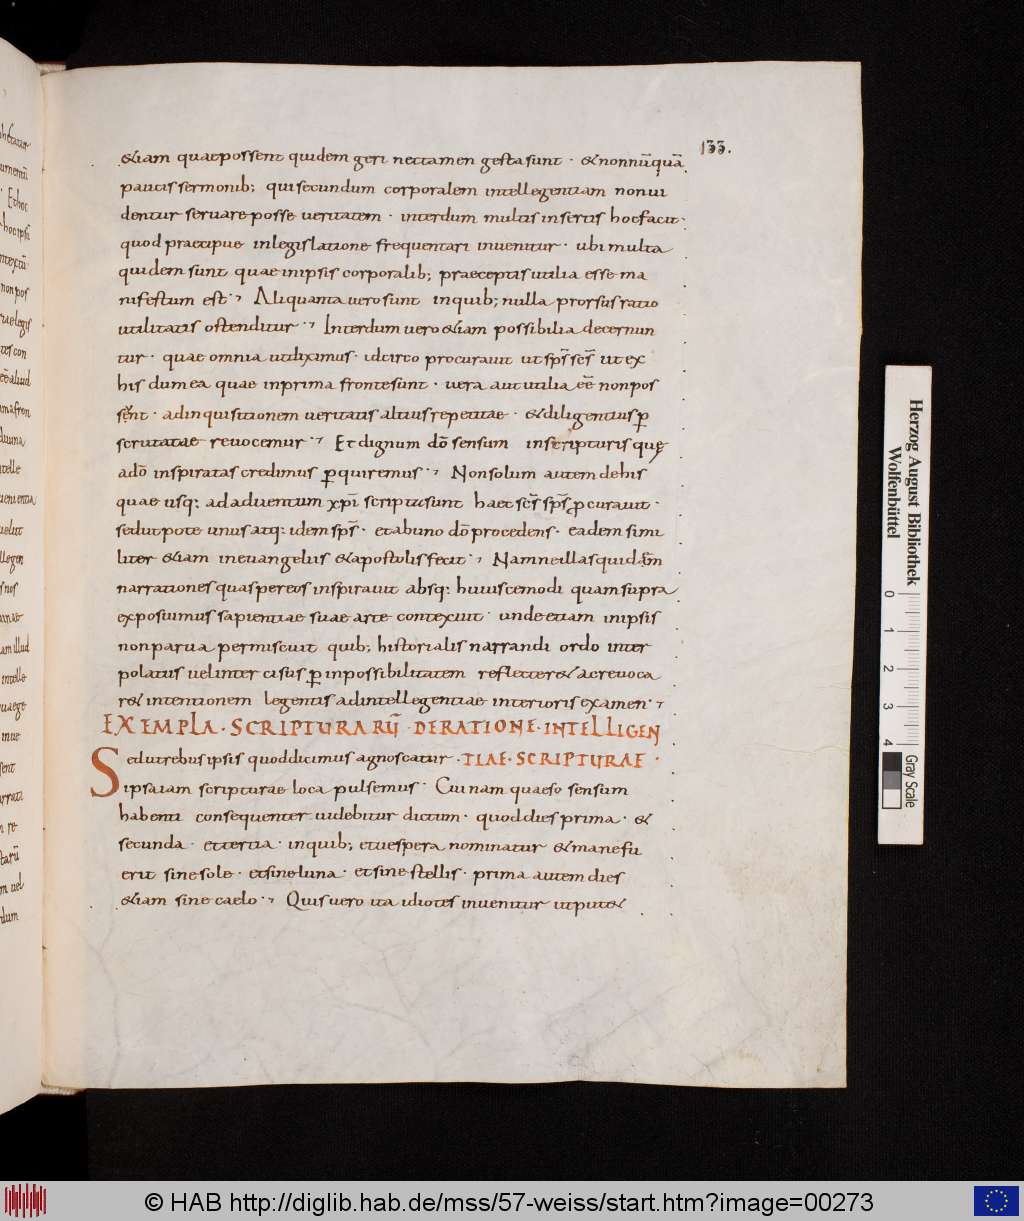 133.
&iam quae possent quidem geri nec tamen gesta sunt · & nonnūquā
paucis sermonib; qui secundum corporalem intellegentiam non ui
dentur seruare posse ueritatem · interdum multis insertis hoc facit ·
quod praecipue in legislatione frequentari inuenitur · ubi multa
quidem sunt quae in ipsis corporalib; praeceptis utilia esse ma
nifestum est · Aliquanta uero sunt inquib; nulla prorsus ratio
utilitatis ostenditur · Interdum uero &iam possibilia decernun
tur · quae omnia ut diximus · idcirco procurauit ut sps̄ scs̄ ut ex
his dum ea quae in prima fronte sunt · uera aut utilia eē non pos
sent · ad inquisitionem ueritatis altius repetitae · & diligentius p
scrutatae reuocemur · Et dignum dō sensum in scripturis quę
a dō inspiratas credimus pquiremus · Non solum autem de his
quae usq: ad aduentum xpī scripta sunt haec scs̄ sps̄ pcurauit ·
sed utpote unus atq: idem sps̄ · et ab uno dō procedens · eadem simi
liter &iam in euangeliis & apostolis fecit · Nam ne illas quidem
narrationes quas per eos inspirauit absq: huiuscemodi quam supra
exposuimus sapientiae suae arte contexuit · unde etiam in ipsis
non parua permiscuit quib; historialis narrandi ordo inter
polatus uel intercisus p inpossibilitatem reflecter& ac reuoca
r& intentionem legentis ad intellegentiae interioris examen ·
EXEMPLA · SCRIPTURARŪ · DE RATIONE · INTELLIGEN
Sed ut rebus ipsis quod dicimus agnoscatur · TIAE · SCRIPTURAE ·
ipsa iam scripturae loca pulsemus · Cuinam quaeso sensum
habenti consequenter uidebitur dictum · quod dies prima · &
secunda · et tertia · inquib; et uespera nominatur & mane fu
erit sine sole · et sine luna · et sine stellis · prima autem dies
&iam sine caelo · Quis uero ita idiotes inuenitur ut put&
Herzog August Bibliothek
Wolfenbüttel
0 1 2 3 4
Gray Scale
© HAB http://diglib.hab.de/mss/57-weiss/start.htm?image=00273